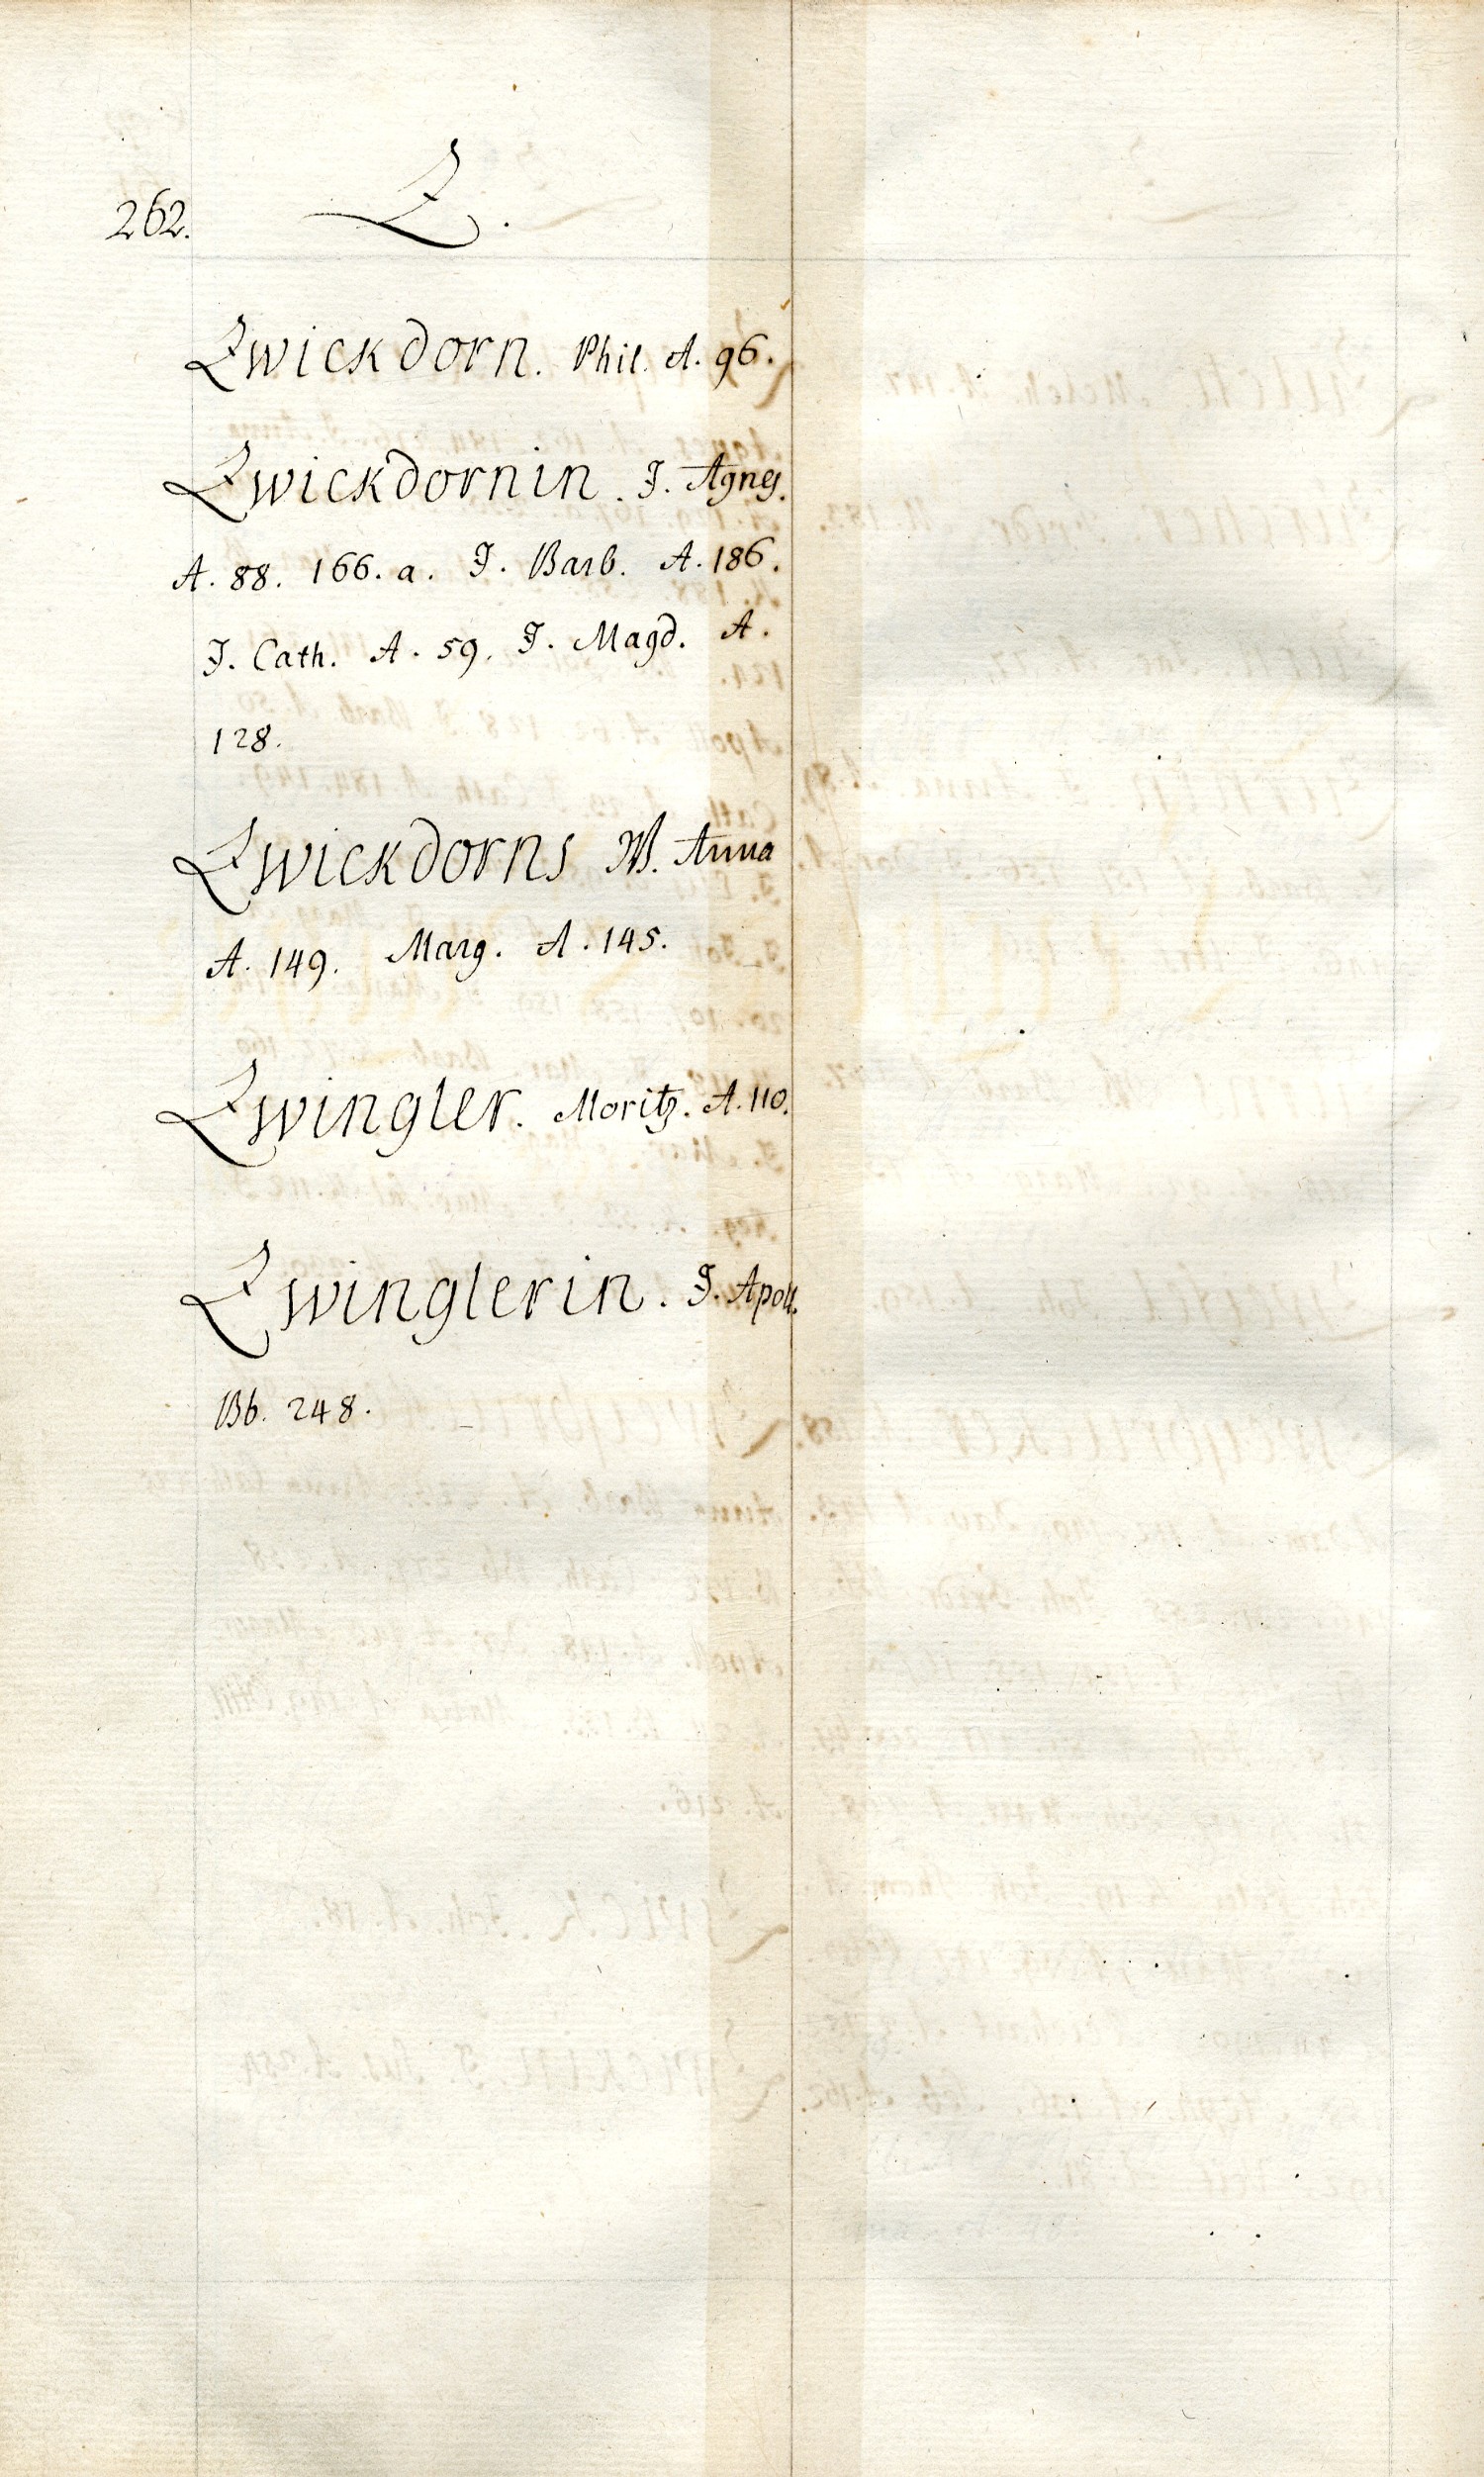 262.
Z.
Zwickdorn. Phil. A. 96.
Zwickdornin. J. Agnes.
A. 88. 166. a. J. Barb. A. 186.
J. Cath. A. 59. J. Magd. A.
128.
Zwickdorns W. Anna
A. 149. Marg. A. 145.
Zwingler. Moritz. A. 110.
Zwinglerin. J. Apoll.
Bb. 248.